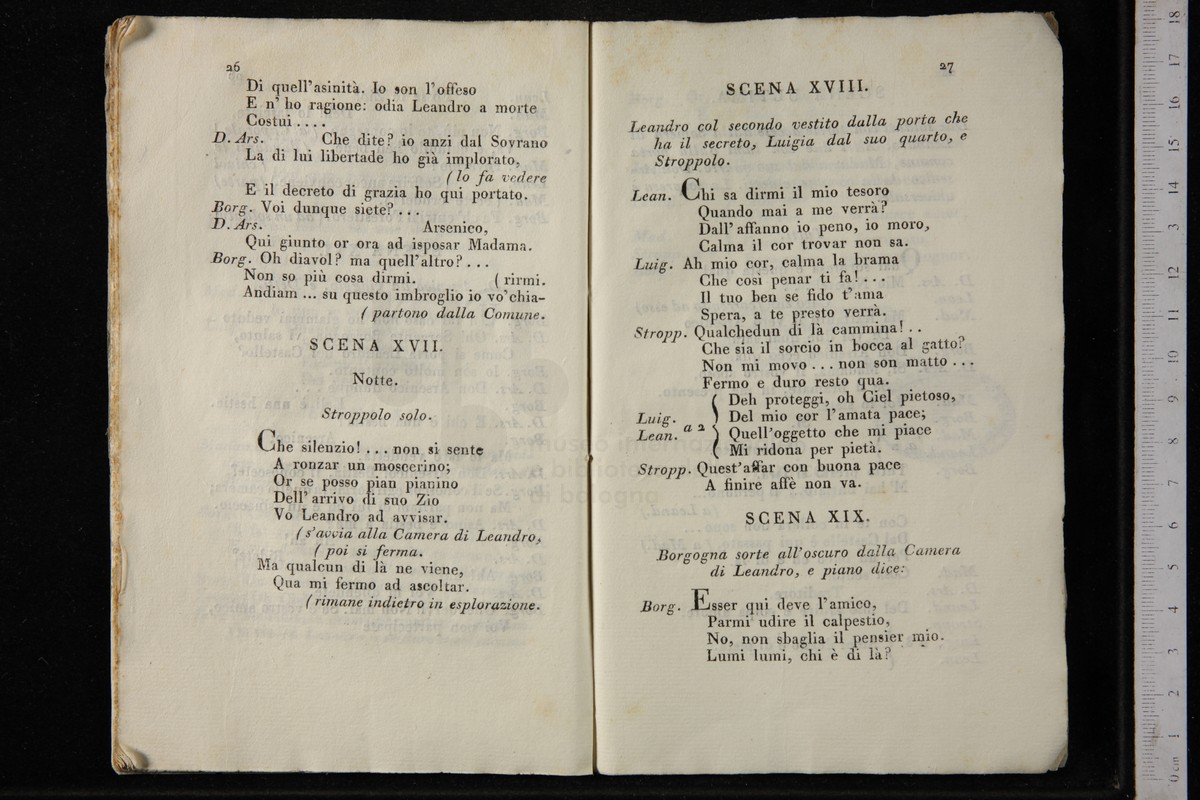 26
Di quell'asinità. Io son l'offeso
E n' ho ragione: odia Leandro a morte
Costui ....
D. Ars. Che dite? io anzi dal Sovrano
La di lui libertade ho già implorato,
( lo fa vedere
E il decreto di grazia ho qui portato.
Borg. Voi dunque siete? ...
D. Ars. Arsenico,
Qui giunto or ora ad isposar Madama.
Borg. Oh diavol? ma quell'altro? ...
Non so più cosa dirmi. ( rirmi.
Andiam ... su questo imbroglio io vo'chia-
( partono dalla Comune.
SCENA XVII.
Notte.
Stroppolo solo.
Che silenzio! ... non si sente
A ronzar un moscerino;
Or se posso pian pianino
Dell' arrivo di suo Zio
Vo Leandro ad avvisar.
( s'avvia alla Camera di Leandro,
( poi si ferma.
Ma qualcun di là ne viene,
Qua mi fermo ad ascoltar.
( rimane indietro in esplorazione.
27
SCENA XVIII.
Leandro col secondo vestito dalla porta che
ha il secreto, Luigia dal suo quarto, e
Stroppolo.
Lean. Chi sa dirmi il mio tesoro
Quando mai a me verrà?
Dall' affanno io peno, io moro,
Calma il cor trovar non sa.
Luig. Ah mio cor, calma la brama
Che così penar ti fa! ...
Il tuo ben se fido t'ama
Spera, a te presto verrà.
Stropp. Qualchedun di là cammina! ..
Che sia il sorcio in bocca al gatto?
Non mi movo ... non son matto ...
Fermo e duro resto qua.
Deh proteggi, oh Ciel pietoso,
Luig. Del mio cor l'amata pace;
Lean. a 2 Quell'oggetto che mi piace
Mi ridona per pietà.
Stropp. Quest'affar con buona pace
A finire affè non va.
SCENA XIX.
Borgogna sorte all'oscuro dalla Camera
di Leandro, e piano dice:
Borg. Esser qui deve l'amico,
Parmi udire il calpestio,
No, non sbaglia il pensier mio.
Lumi lumi, chi è di là?
0 cm 1 2 3 4 5 6 7 8 9 10 11 12 13 14 15 16 17 18